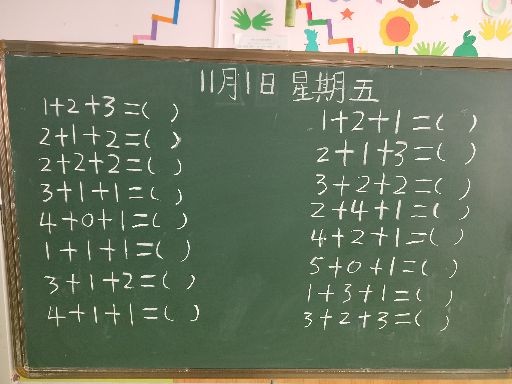 11月1日 星期五
1+2+3=( )
2+1+2=( )
2+2+2=( )
3+1+1=( )
4+0+1=( )
1+1+1=( )
3+1+2=( )
4+1+1=( )
1+2+1=( )
2+1+3=( )
3+2+2=( )
2+4+1=( )
4+2+1=( )
5+0+1=( )
1+3+1=( )
3+2+3=( )